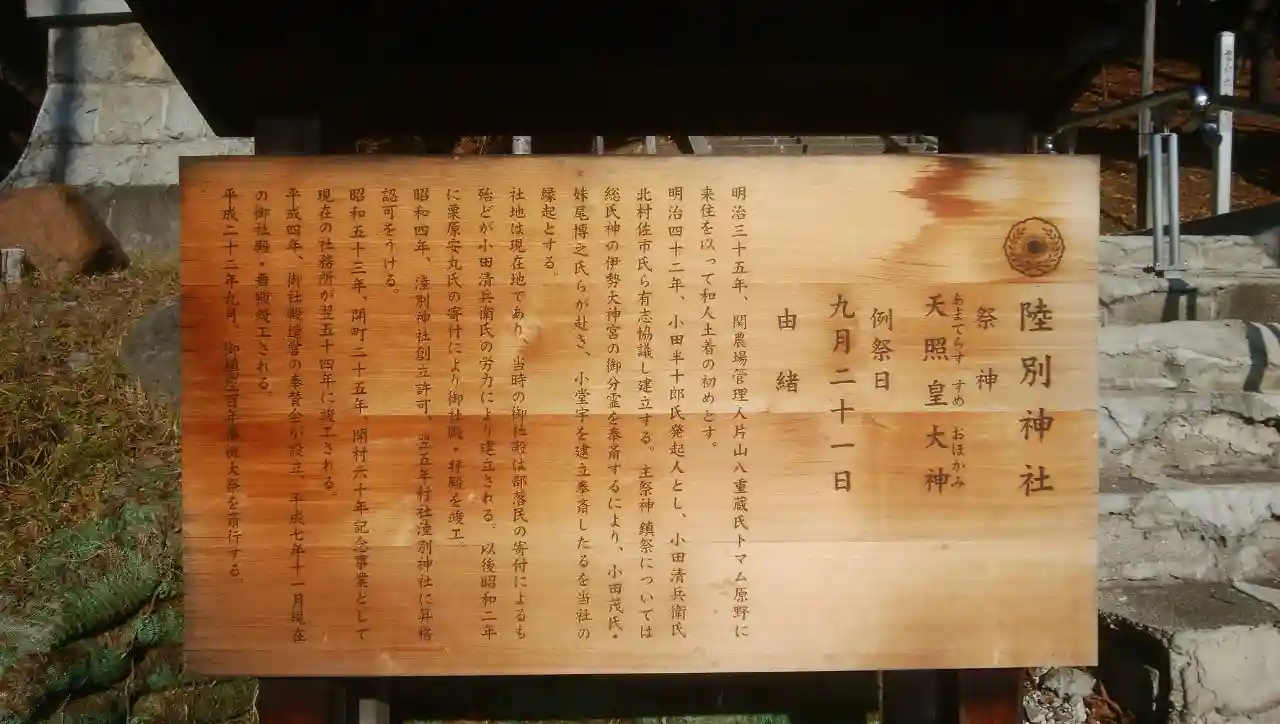 陸別神社
祭神
天照皇大神
あまてらす すめ おほかみ
例祭日
九月二十一日
由緒
明治三十五年、関農場管理人片山八重蔵氏トマム原野に
来住を以って和人土着の初めとす。
明治四十二年、小田半十郎氏発起人とし、小田清兵衛氏、
北村佐市氏ら有志協議し建立する。主祭神鎮祭については
総氏神の伊勢大神宮の御分霊を奉斎するにより、小田茂氏・
妹尾博之氏らが赴き、小堂宇を建立奉斎したるを当社の
縁起とする。
社地は現在地であり、当時の御社殿は部落民の寄付によるも
殆どが小田清兵衛氏の労力により建立される。以後昭和二年
に栗原安丸氏の寄付により御社殿・拝殿を竣工。
昭和四年、陸別神社創立許可、翌五年村社陸別神社に昇格
認可をうける。
昭和五十三年、開町二十五年、開村六十年記念事業として
現在の社務所が翌五十四年に竣工される。
平成四年、御社殿造営の奉賛会が設立、平成七年十一月現在
の御社殿・幣殿竣工される。
平成二十二年九月、御鎮座百年奉祝大祭を斎行する。